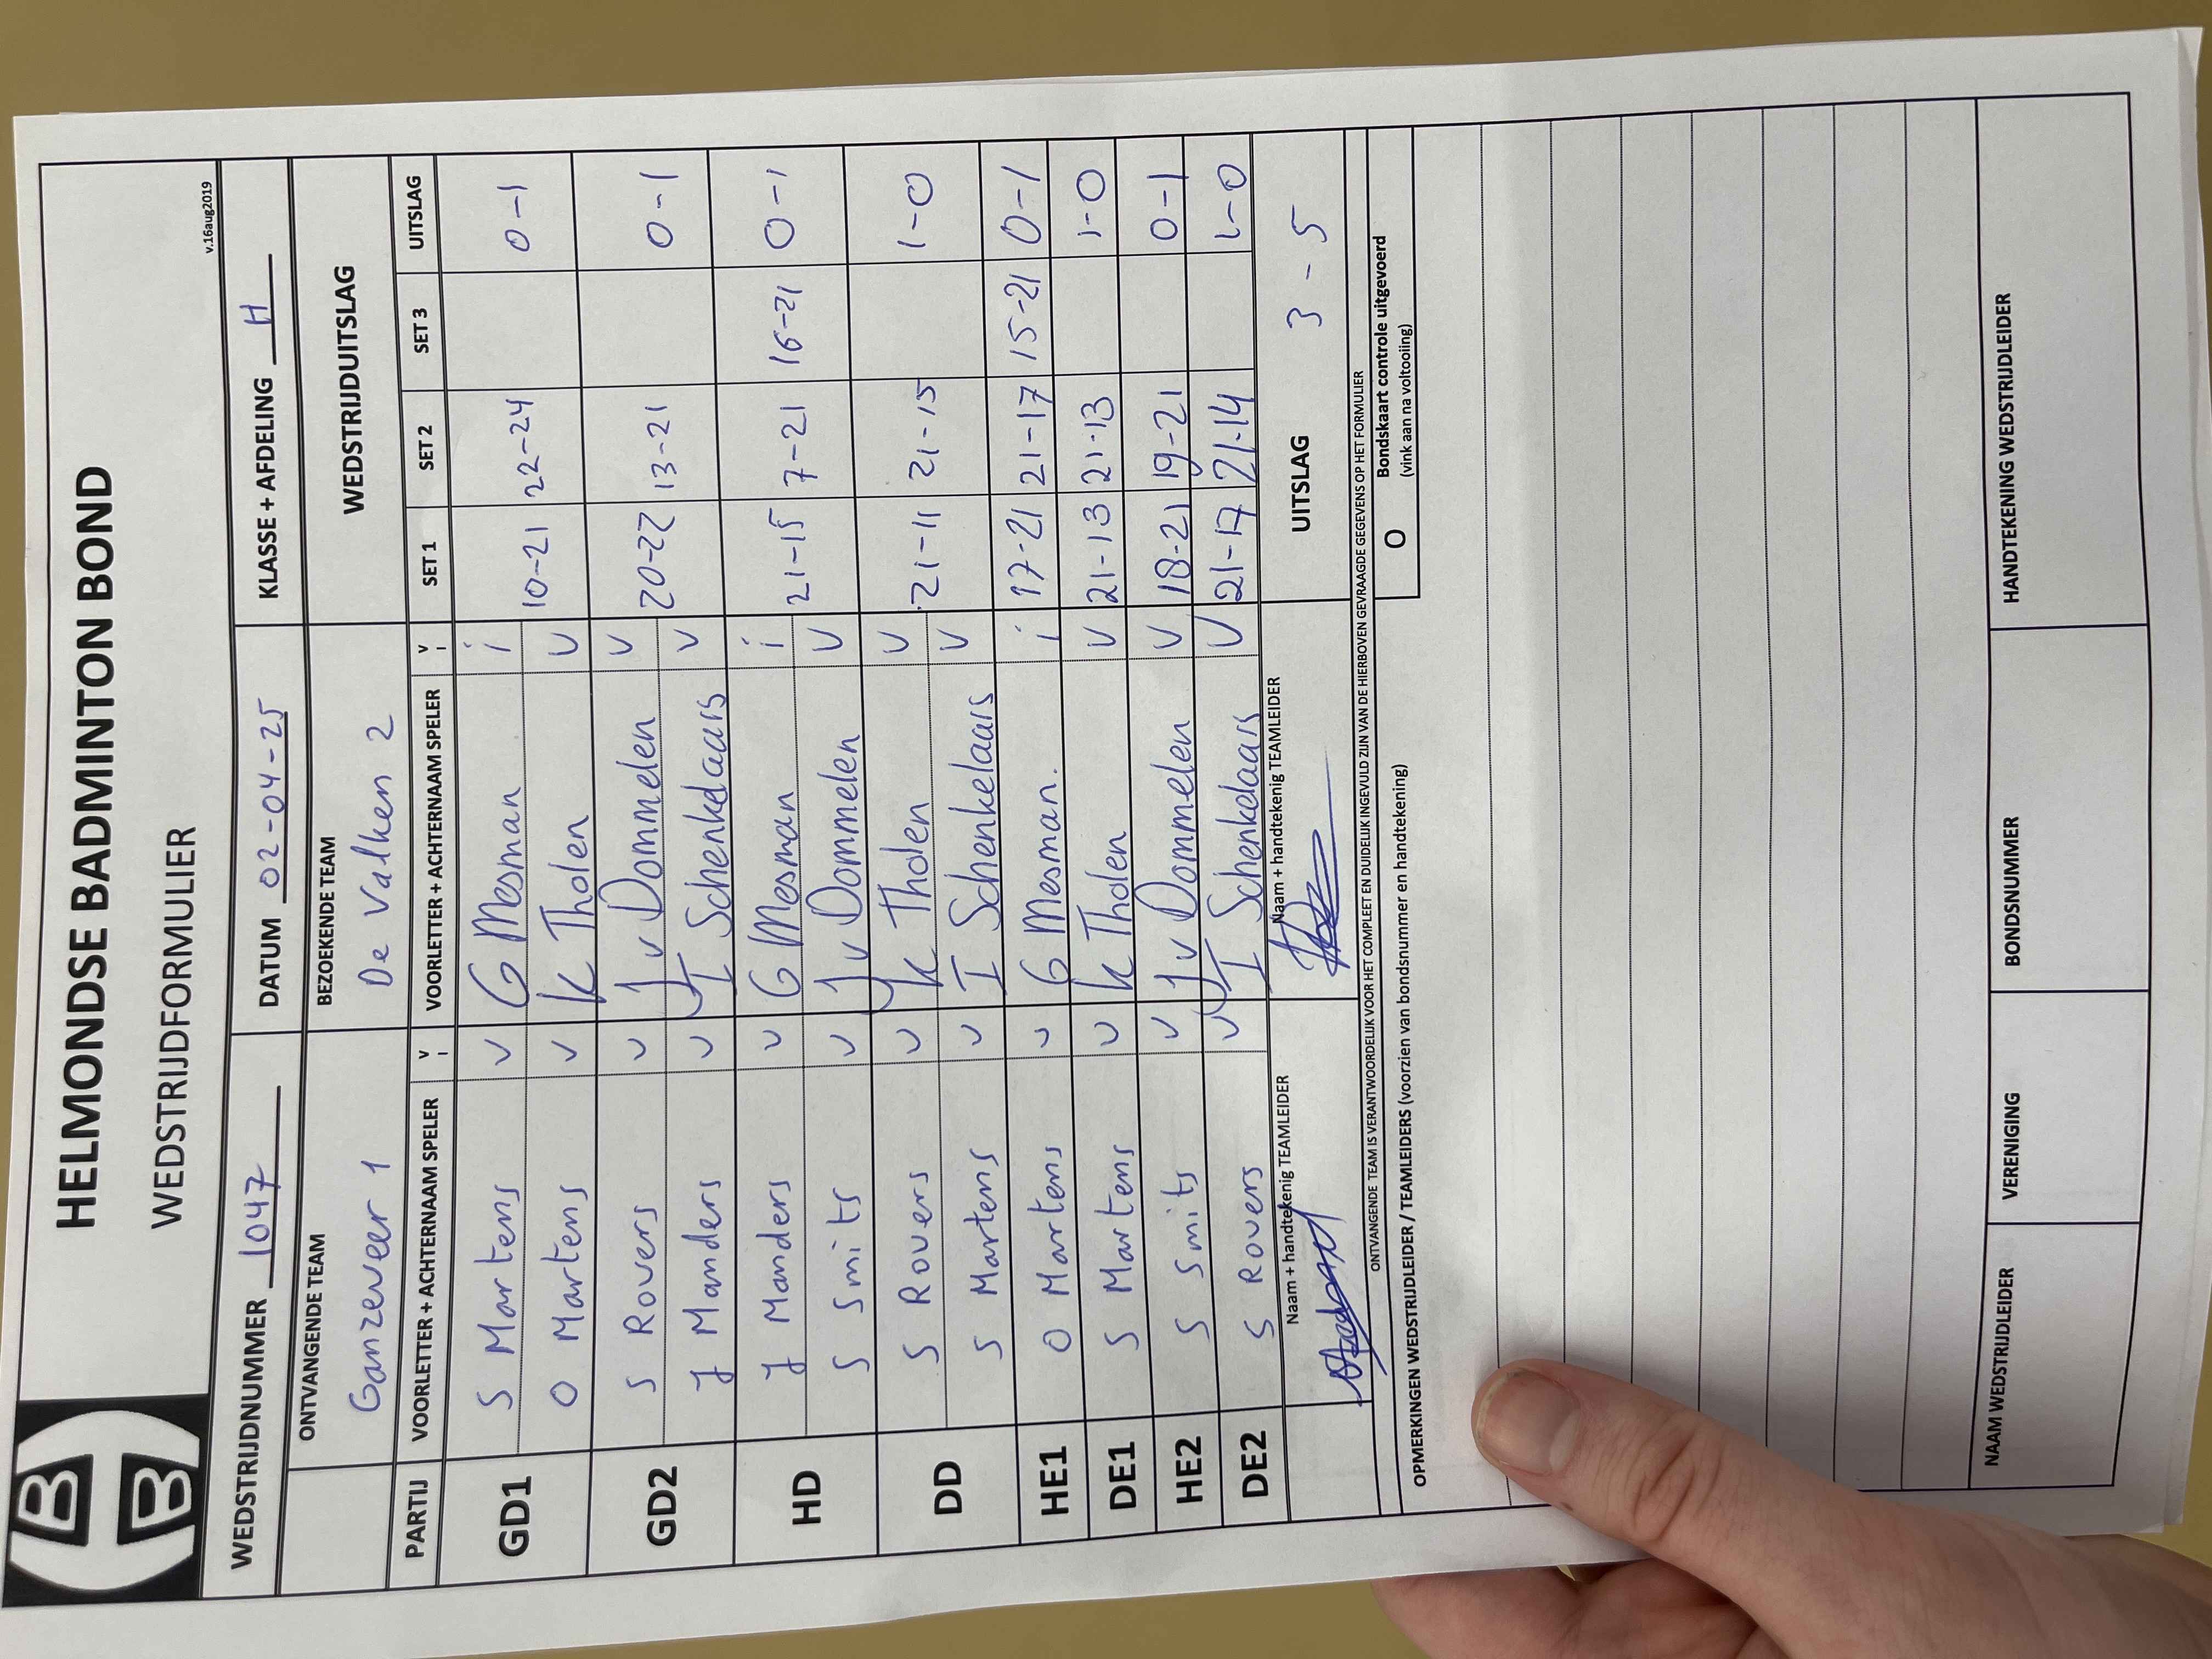 HELMONDSE BADMINTON BOND
WEDSTRIJDFORMULIER
v.16aug2019
WEDSTRIJDNUMMER 1047 DATUM 02-04-25 KLASSE + AFDELING H
ONTVANGENDE TEAM BEZOEKENDE TEAM WEDSTRIJDUITSLAG
Ganzeveer 1 De Valken 2
PARTIJ VOORLETTER + ACHTERNAAM SPELER V I VOORLETTER + ACHTERNAAM SPELER V I SET 1 SET 2 SET 3 UITSLAG
GD1 S Martens v G Mesman i 10-21 22-24 0-1
O Martens v K Tholen v
GD2 S Rovers v J v Dommelen v 20-22 13-21 0-1
J Manders v I Schenkelaars v
HD J Manders v G Mesman i 21-15 7-21 16-21 0-1
S Smits v J v Dommelen v
DD S Rovers v K Tholen v 21-11 21-15 1-0
S Martens v I Schenkelaars v
HE1 O Martens v G Mesman. i 17-21 21-17 15-21 0-1
DE1 S Martens v K Tholen v 21-13 21-13 1-0
HE2 S Smits v J v Dommelen v 18-21 19-21 0-1
DE2 S Rovers v I Schenkelaars v 21-17 21-14 1-0
Naam + handtekenig TEAMLEIDER Naam + handtekenig TEAMLEIDER UITSLAG 3 - 5
ONTVANGENDE TEAM IS VERANTWOORDELIJK VOOR HET COMPLEET EN DUIDELIJK INGEVULD ZIJN VAN DE HIERBOVEN GEVRAAGDE GEGEVENS OP HET FORMULIER
OPMERKINGEN WEDSTRIJDLEIDER / TEAMLEIDERS (voorzien van bondsnummer en handtekening) O Bondskaart controle uitgevoerd
(vink aan na voltooling)
NAAM WEDSTRIJDLEIDER VERENIGING BONDSNUMMER HANDTEKENING WEDSTRIJDLEIDER